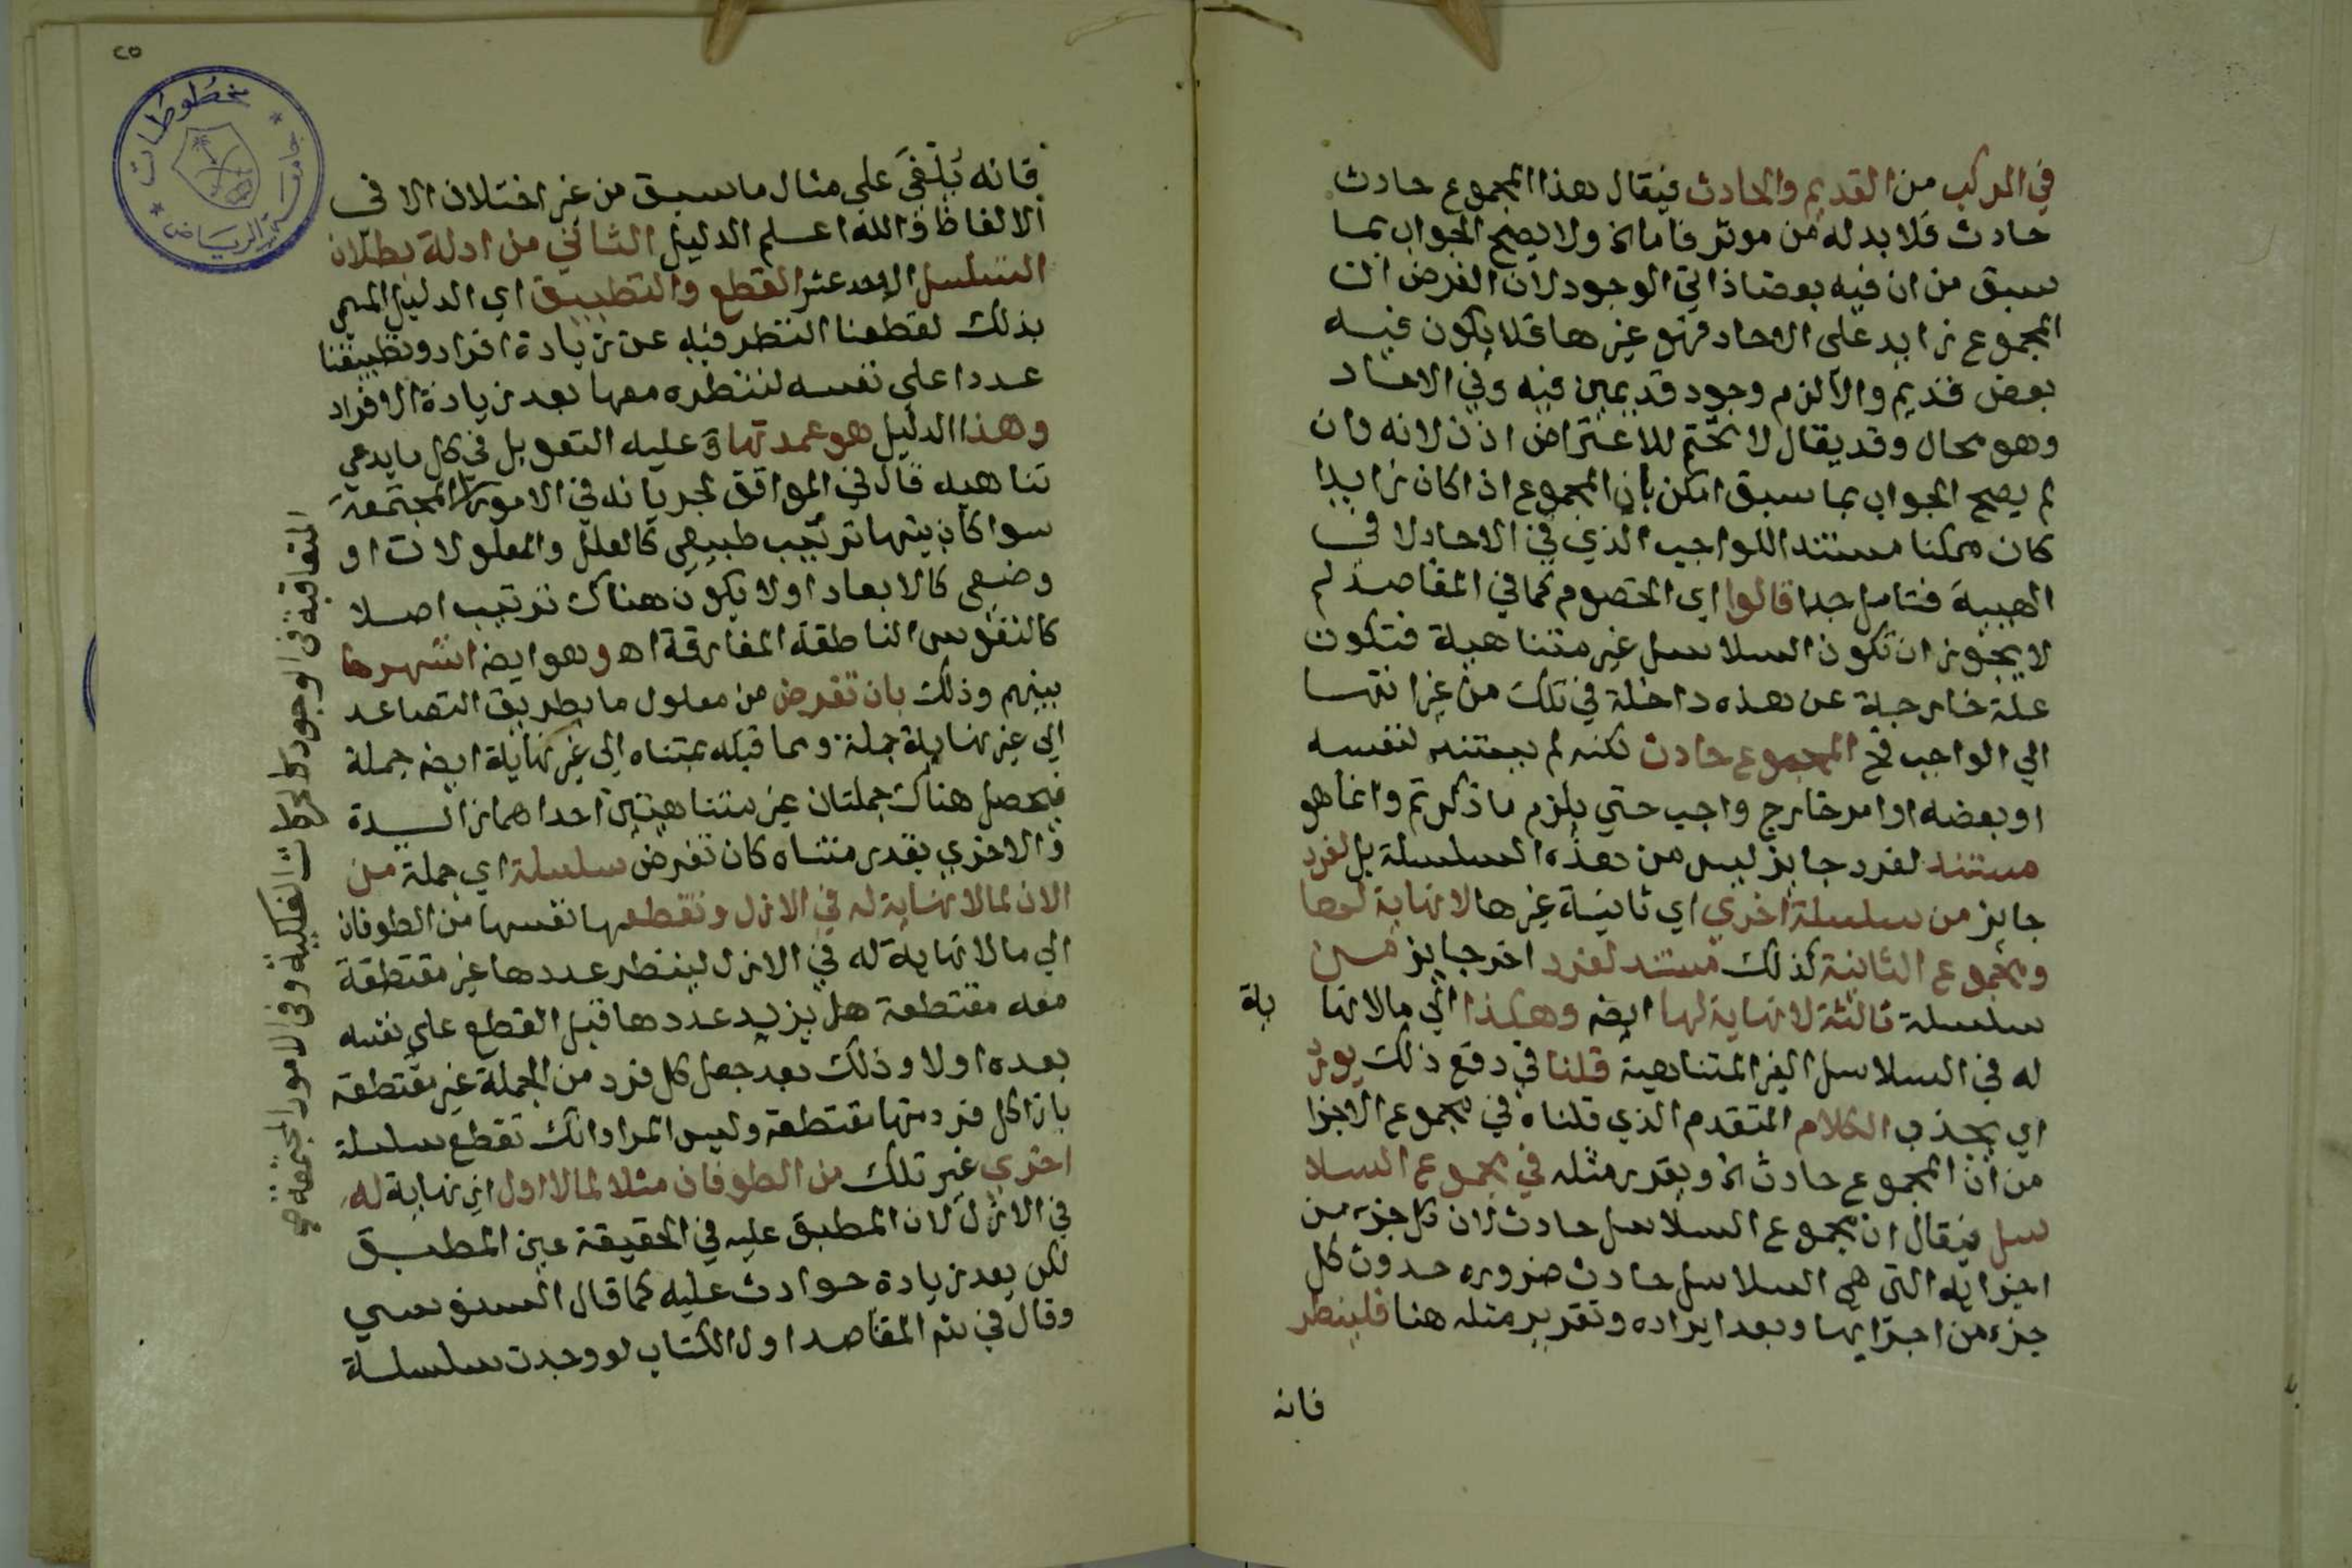 في المركب من القديم والحادث فيقال هذا المجموع حادث
حادث فلا بد له من موثر فاما الخ ولا يصح الجواب بما
سبق من ان فيه بعضا ذاتي الوجود لان الفرض ان
المجموع زايد على الاحاد فهو غيرها فلا يكون فيه
بعض قديم والا لزم وجود قديمين فيه وفي الاحاد
وهو محال وقد يقال لا تحتم للاعتراض اذن لانه وان
لم يصح الجواب بما سبق امكن بان المجموع اذا كان زايدا
كان ممكنا مستندا للواجب الذي في الاحاد لا في
الهيية فتامل جدا قالوا اي الخصوم كما في المقاصد لم
لا يجوز ان تكون السلاسل غير متناهية فتكون
علة خارجة عن هذه داخلة في تلك من غير انتها
الي الواجب فح المجموع حادث لكنه لم يستند لنفسه
او بعضه او امر خارج واجب حتي يلزم ما ذكرتم وانما هو
مستند لفرد جايز ليس من هذه السلسلة بل لفرد
جايز من سلسلة اخري اي ثانية غيرها لا نهاية لها
ومجموع الثانية كذلك مستند لفرد اخر جايز من
سلسلة ثالثة لا نهاية لها ايضه وهكذا الي مالا نها ية
له في السلاسل الغير المتناهية قلنا في دفع ذلك يورد
اي بحذف الكلام المتقدم الذي قلناه في مجموع الاجزا
من ان المجموع حادث الخ ويقدر مثله في مجموع السلا
سل فيقال ان مجموع السلاسل حادث لان كل جزء من
اجزايه التي هي السلاسل حادث ضروره حدوث كل
جزء من اجزايها وبعد ايراده وتقرير مثله هنا فلينظر
فانه
٢٥
مخطوطات
جامعة الرياض
فانه يَلْفَي علي مثال ما سبق من غير اختلاف الا في
الالفاظ والله اعلم الدليل الثاني من ادلة بطلان
التسلسل الاحد عشر القطع والتطبيق اي الدليل المسمي
بذلك لقطعنا النظر فيه عن زيادة افراد وتطبيقنا
عددا علي نفسه لننظره معها بعد زيادة الافراد
وهذا الدليل هو عمدتها وعليه التعويل في كل ما يدعي
تناهيه قال في المواقف لجريانه في الامور المجتمعة
سوا كان بينها ترتيب طبيعي كالعلل والمعلولات او
وضعي كالابعاد اولا يكون هناك ترتيب اصلا
كالنفوس الناطقة المفارقة اه وهو ايضه اشهرها
بينهم وذلك بان تفرض من معلول ما بطريق التصاعد
الي غير نهاية جملة ومما قبله بمتناه الي غير نهاية ايضه جملة
فيحصل هناك جملتان غير متناهيتين احداهما زايدة
والاخري بقدر متناه كان تفرض سلسلة اي جملة من
الان لمالا نهاية له في الازل وتقطعها نفسها من الطوفان
الي مالا نهاية له في الازل لينظر عددها غير مقتطعة
معه مقتطعة هل يزيد عددها قبل القطع علي نفسه
بعده اولا وذلك بعد جعل كل فرد من الجملة غير مقتطعة
بازا كل فرد منها مقتطعة وليس المراد انك تقطع سلسلة
اخري غير تلك من الطوفان مثلا لمالا اول اي نهاية له
في الازل لان المطبق عليه في الحقيقة عين المطبق
لكن بعد زيادة حوادث عليه كما قال السنوسي
وقال في شم المقاصد اول الكتاب لو وجدت سلسلة
المتعاقبة في الوجود كالحركات الفلكية وفي الامور المجتمعة صح